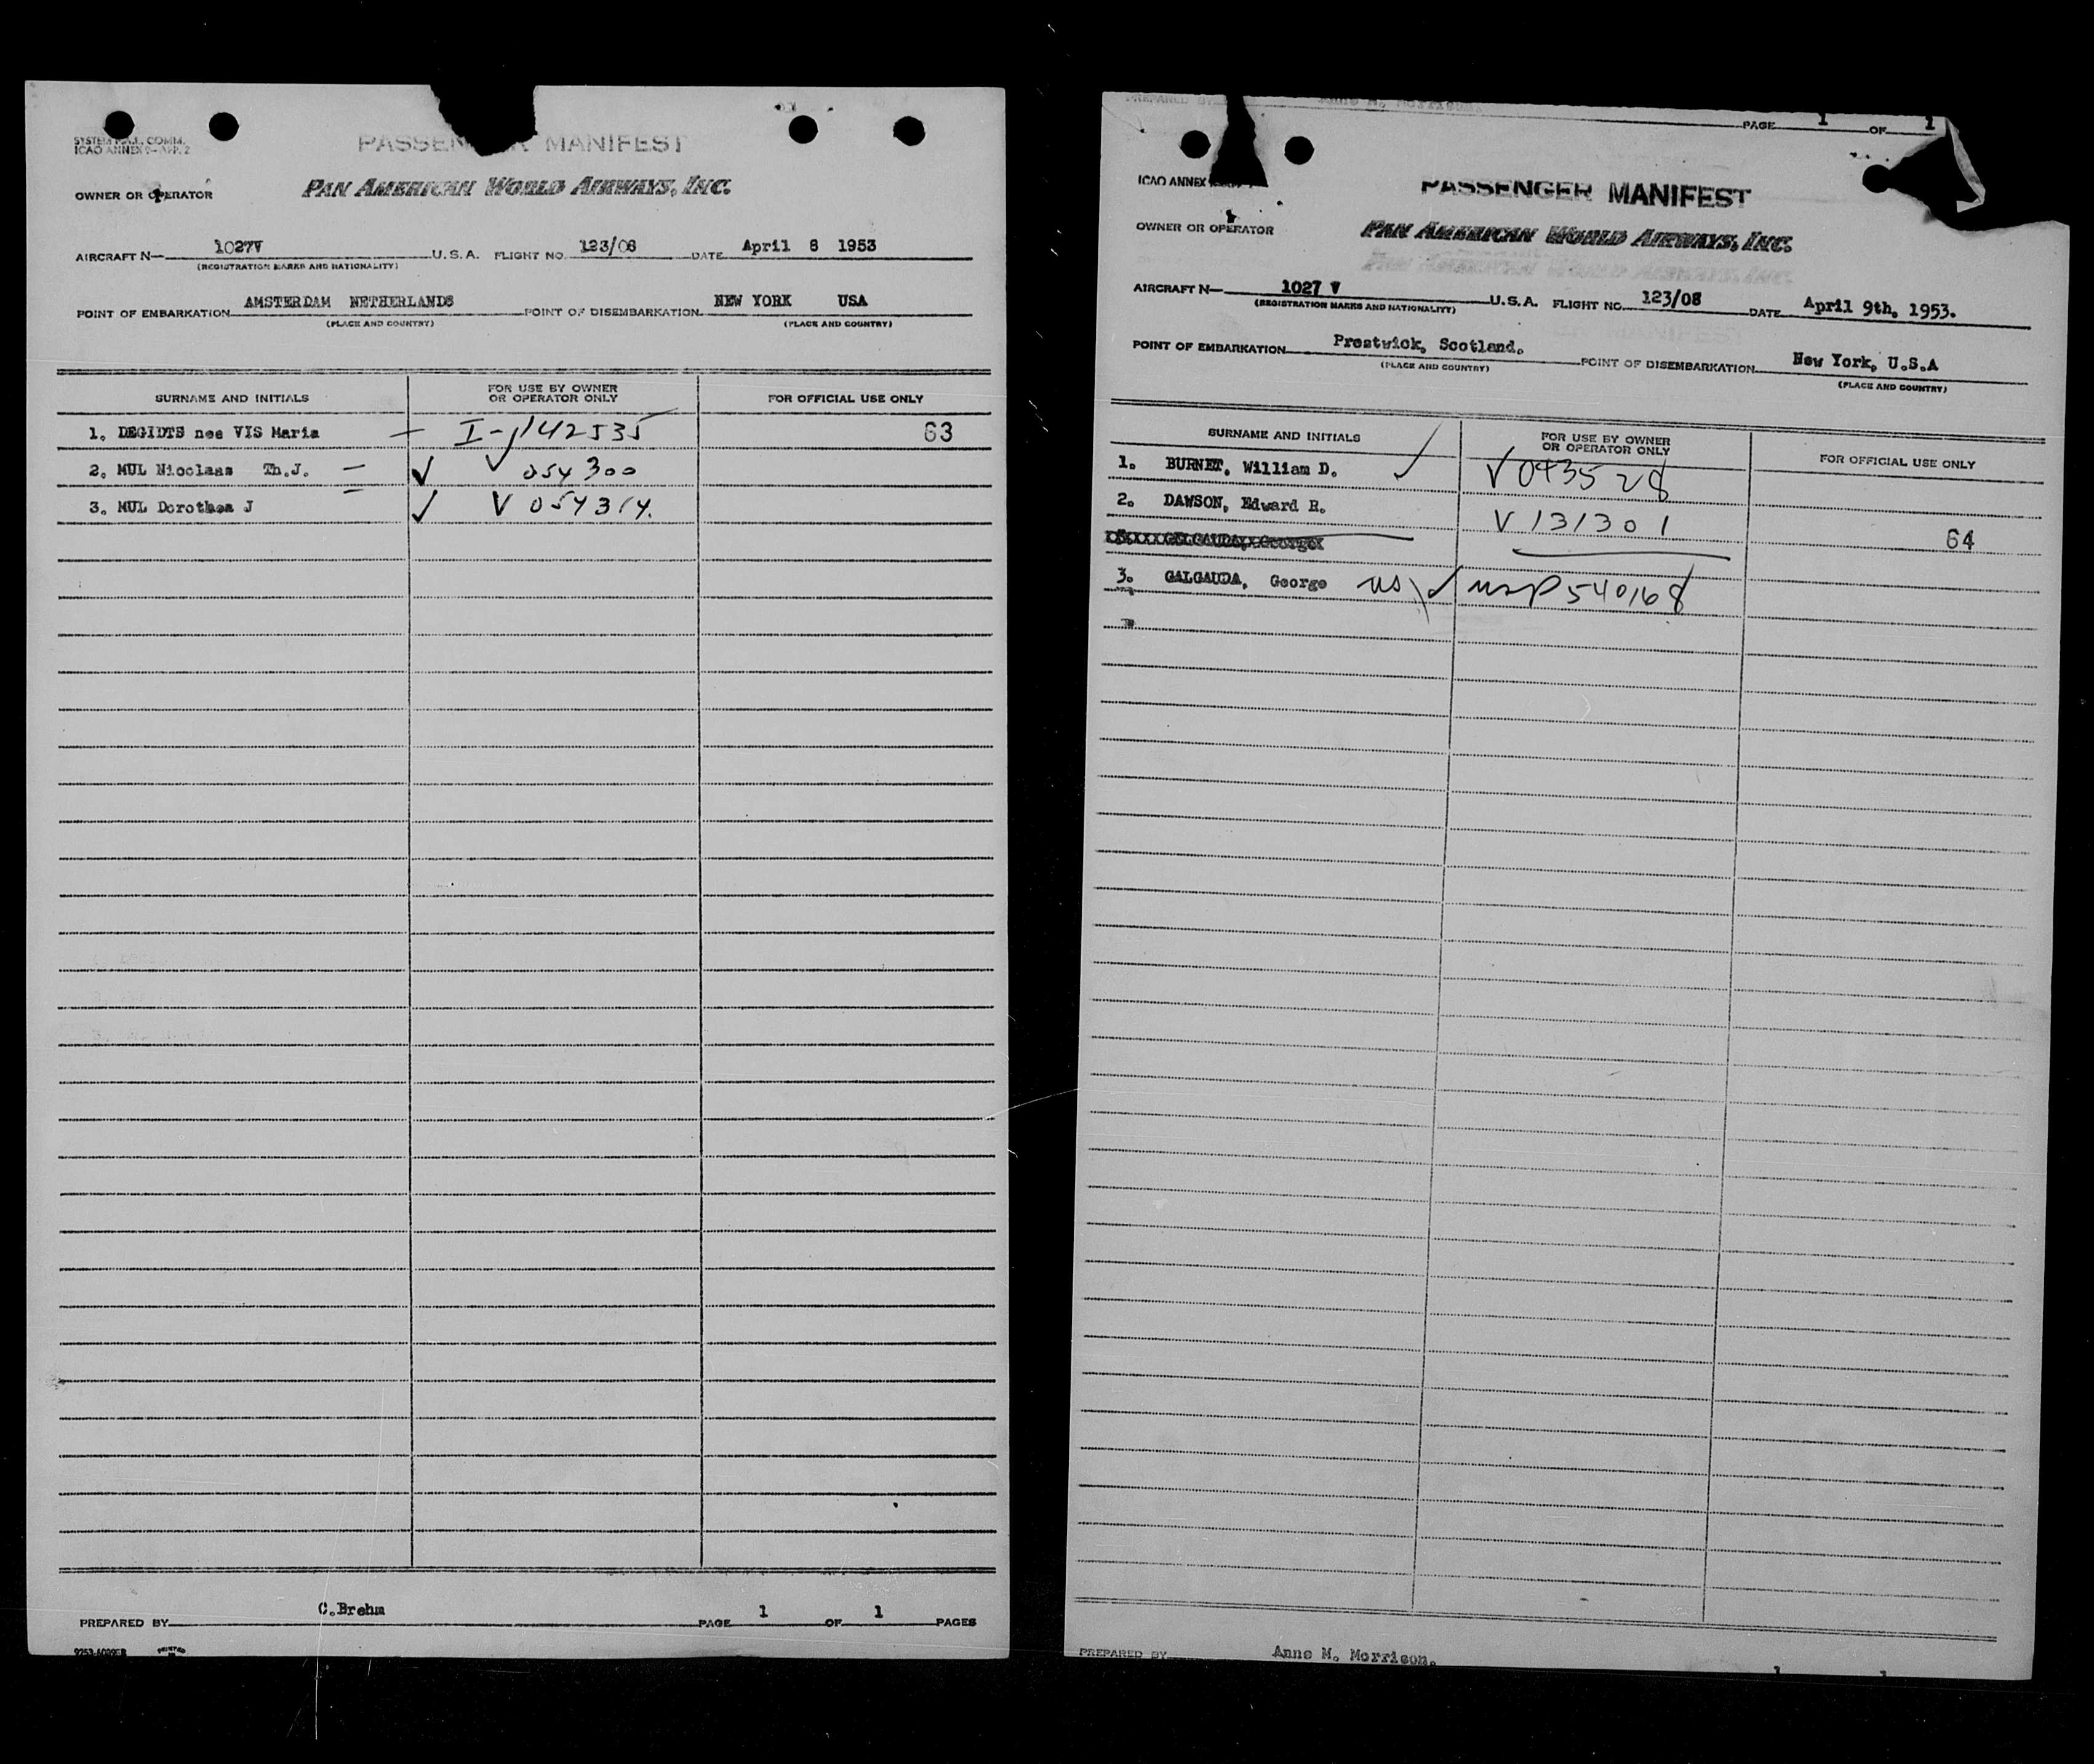 SYSTEM
ICAO ANNEX
PASSENGER MANIFEST
OWNER OR OPERATOR
PAN AMERICAN WORLD AIRWAYS, INC.
AIRCRAFT N— 1027V U.S.A. FLIGHT NO. 123/08 DATE April 8 1953
(REGISTRATION MARKS AND NATIONALITY)
POINT OF EMBARKATION AMSTERDAM NETHERLANDS POINT OF DISEMBARKATION NEW YORK USA
(PLACE AND COUNTRY) (PLACE AND COUNTRY)
SURNAME AND INITIALS FOR USE BY OWNER OR OPERATOR ONLY FOR OFFICIAL USE ONLY
1. DEGIDTS nee VIS Maria — I-142535 63
2. MUL Nicolaas Th.J. — ✓ V 054300
3. MUL Dorothea J — ✓ V 054314.
PREPARED BY C.Brehm PAGE 1 OF 1 PAGES
PREPARED BY Anne M. Morrison.
PAGE 1 OF 1
ICAO ANNEX
PASSENGER MANIFEST
OWNER OR OPERATOR
PAN AMERICAN WORLD AIRWAYS, INC.
AIRCRAFT N— 1027 V U.S.A. FLIGHT NO. 123/08 DATE April 9th, 1953.
(REGISTRATION MARKS AND NATIONALITY)
POINT OF EMBARKATION Prestwick, Scotland. POINT OF DISEMBARKATION New York, U.S.A
(PLACE AND COUNTRY) (PLACE AND COUNTRY)
SURNAME AND INITIALS FOR USE BY OWNER OR OPERATOR ONLY FOR OFFICIAL USE ONLY
1. BURNET, William D. ✓ V 043528
2. DAWSON, Edward R. V 131301
64
3. GALGAUDA, George US ✓ USP 540168
PREPARED BY Anne M. Morrison. 1 1